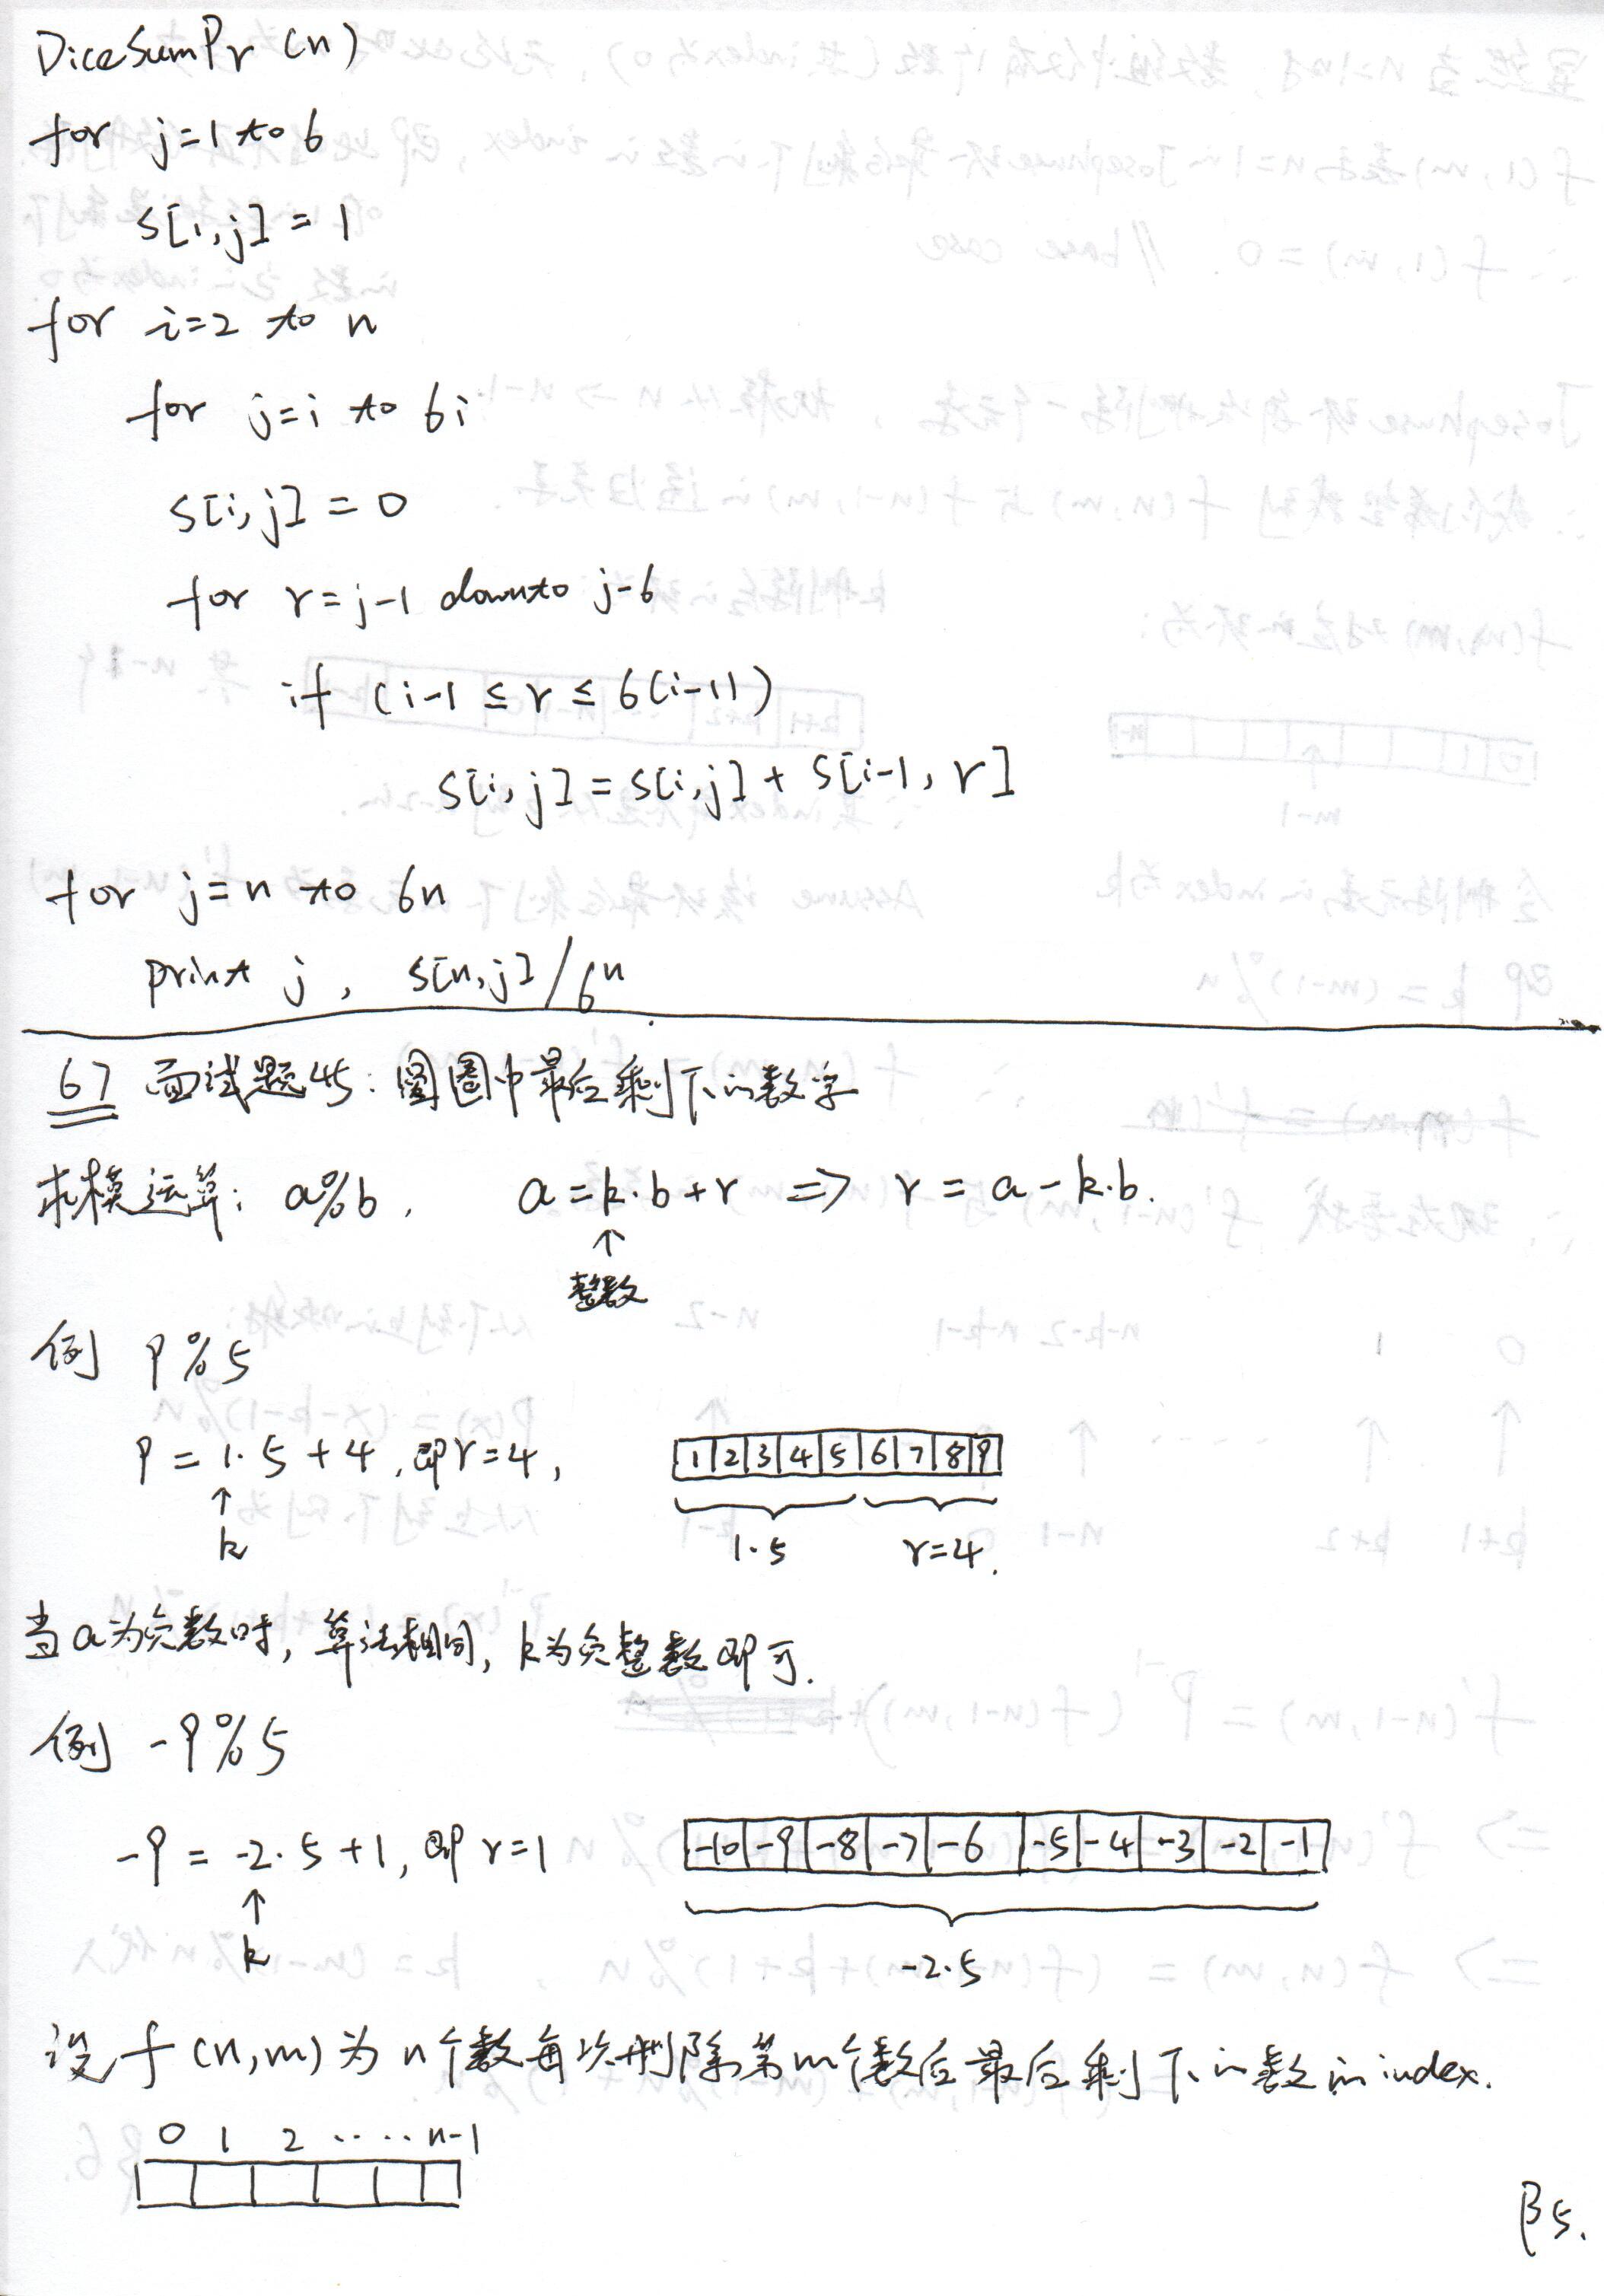 DiceSumPr (n)
for j=1 to 6
s[1,j] = 1
for i=2 to n
for j=i to 6i
s[i,j] = 0
for r=j-1 downto j-6
if (i-1 ≤ r ≤ 6(i-1))
s[i,j] = s[i,j] + s[i-1, r]
for j=n to 6n
print j, s[n,j]/6ⁿ.
67 面试题45: 圆圈中最后剩下的数字
求模运算: a%b, a=k·b+r => r = a-k·b.
↑
整数
例 9%5
9 = 1·5+4, 即r=4, 1 2 3 4 5 6 7 8 9
↑
k 1·5 r=4.
当a为负数时, 算法相同, k为负整数即可.
例 -9%5
-9 = -2·5+1, 即 r=1 -10 -9 -8 -7 -6 -5 -4 -3 -2 -1
↑
k -2·5
设f(n,m)为n个数每次删除第m个数后最后剩下的数的index.
0 1 2 ····· n-1
P5.